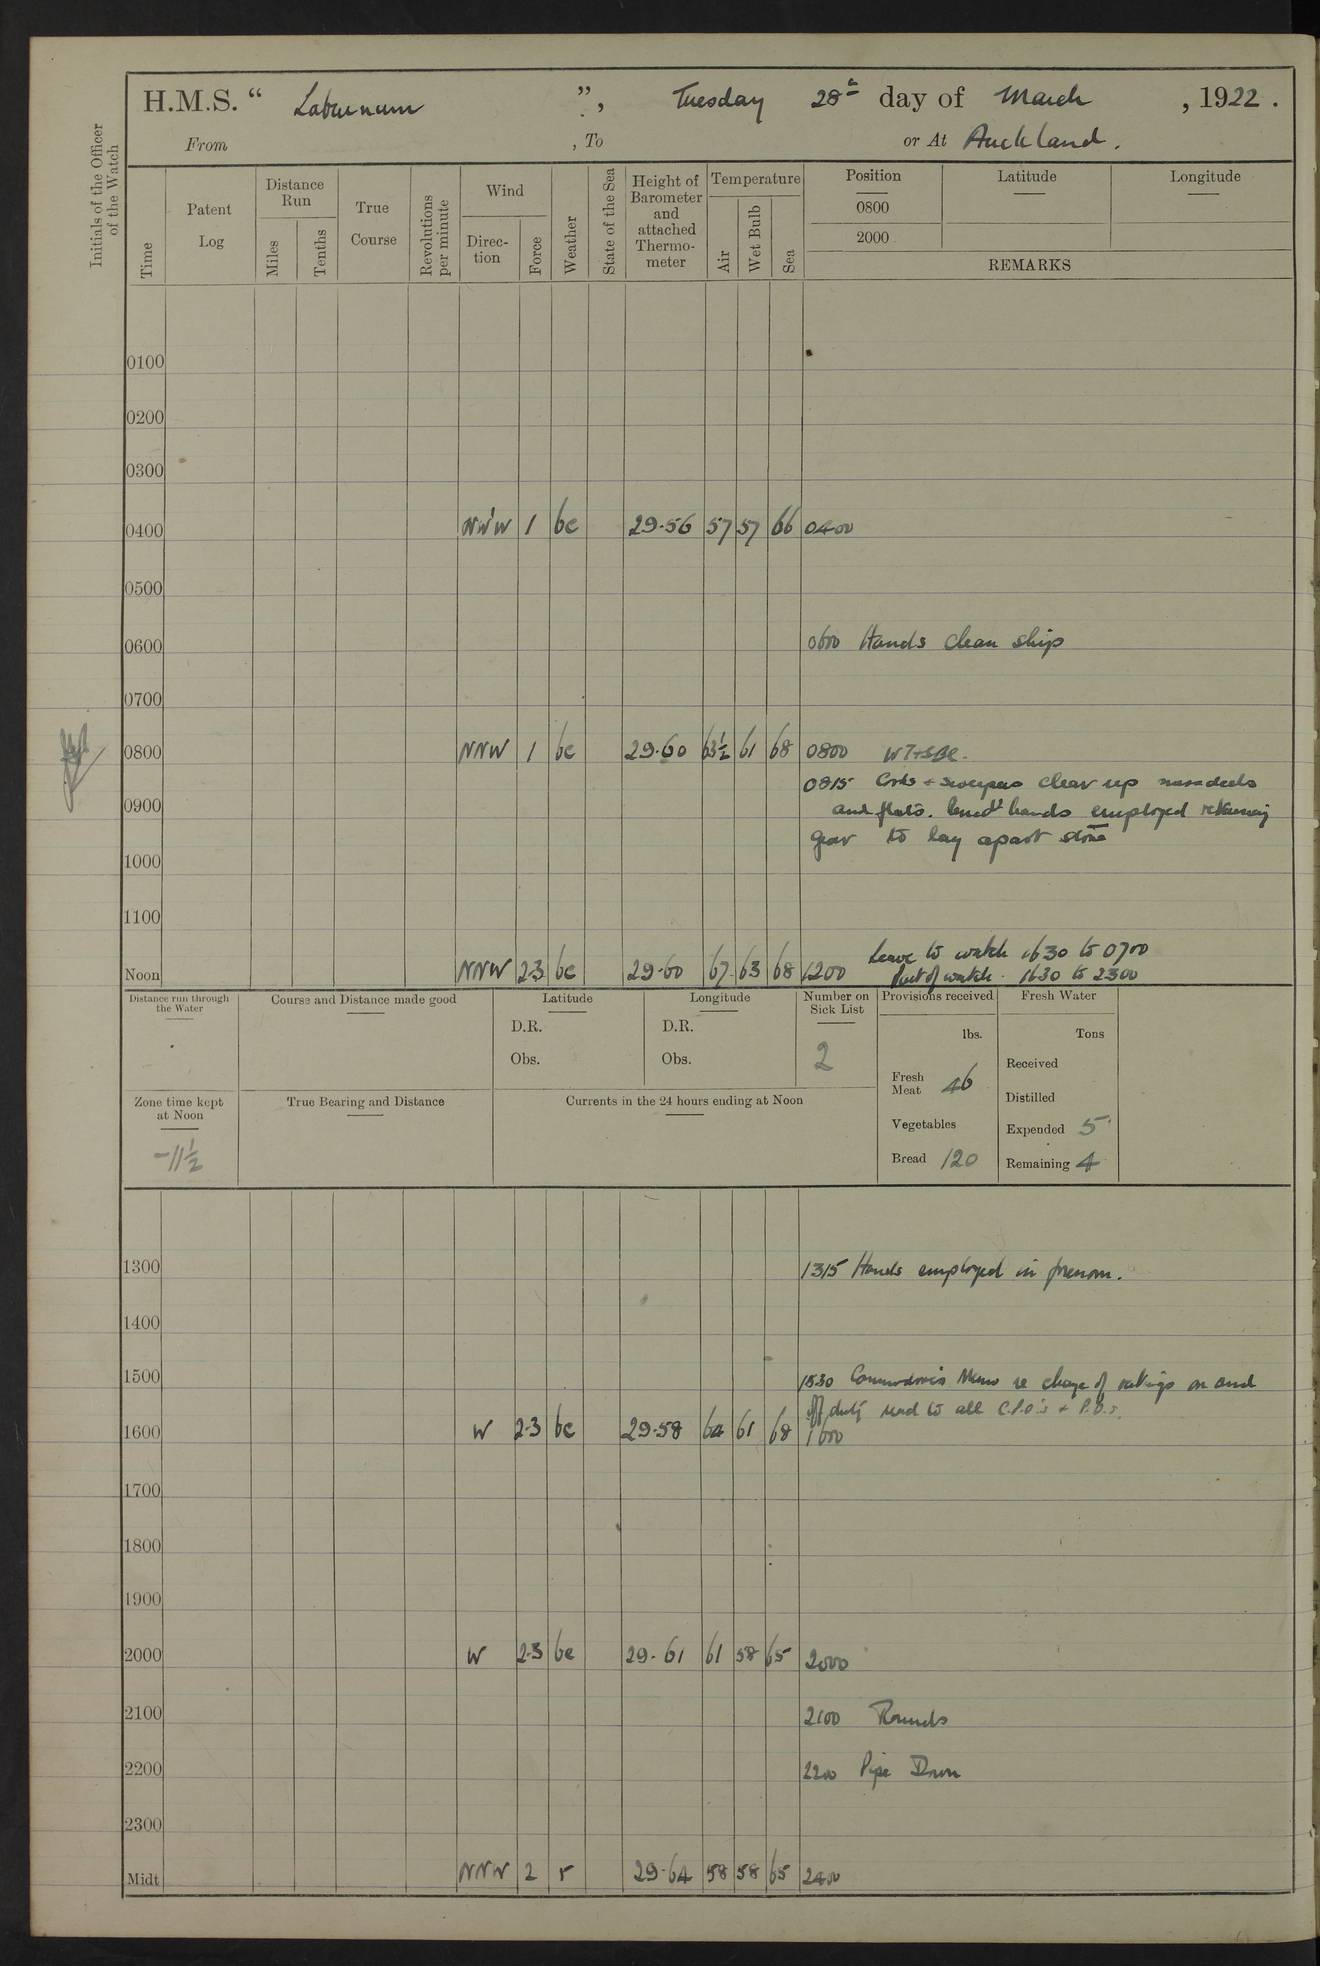 H.M.S. “ Laburnum ”, Tuesday 28th day of March , 1922 .
From , To or At Auckland .
Initials of the Officer of the Watch
Time Patent Log Distance Run Miles Tenths True Course Revolutions per minute Wind Direc- tion Force Weather State of the Sea Height of Barometer and attached Thermo- meter Temperature Air Wet Bulb Sea Position Latitude Longitude
0800
2000
REMARKS
0100
0200
0300
0400 NW'W 1 bc 29.56 57 57 66 0400
0500
0600 0600 Hands clean ship
0700
0800 NNW 1 bc 29.60 63½ 61 68 0800
0815 Cooks + sweepers clear up messdecks
0900 and flats. hands employed returning
gear to lay apart store
1000
1100
Leave to watch 1630 to 0700
Noon NNW 2-3 bc 29.60 67 63 68 1200 Part of watch. 1630 to 2300
Distance run through the Water Course and Distance made good Latitude Longitude Number on Sick List Provisions received Fresh Water
D.R. D.R. lbs. Tons
Obs. Obs. 2 Received
Fresh Meat 46
Distilled
Zone time kept at Noon True Bearing and Distance Currents in the 24 hours ending at Noon
Vegetables Expended 5
-11½ Bread 120 Remaining 4
1300 1315 Hands employed in forenoon.
1400
1500 1530 Commodore's Memo re change of ratings on and
off duty read to all C.P.O's + P.O.s.
1600 W 2-3 bc 29.58 64 61 68 1600
1700
1800
1900
2000 W 2-3 bc 29.61 61 58 65 2000
2100 2100 Rounds
2200 2200 Pipe Down
2300
Midt NNW 2 r 29.64 58 58 65 2400